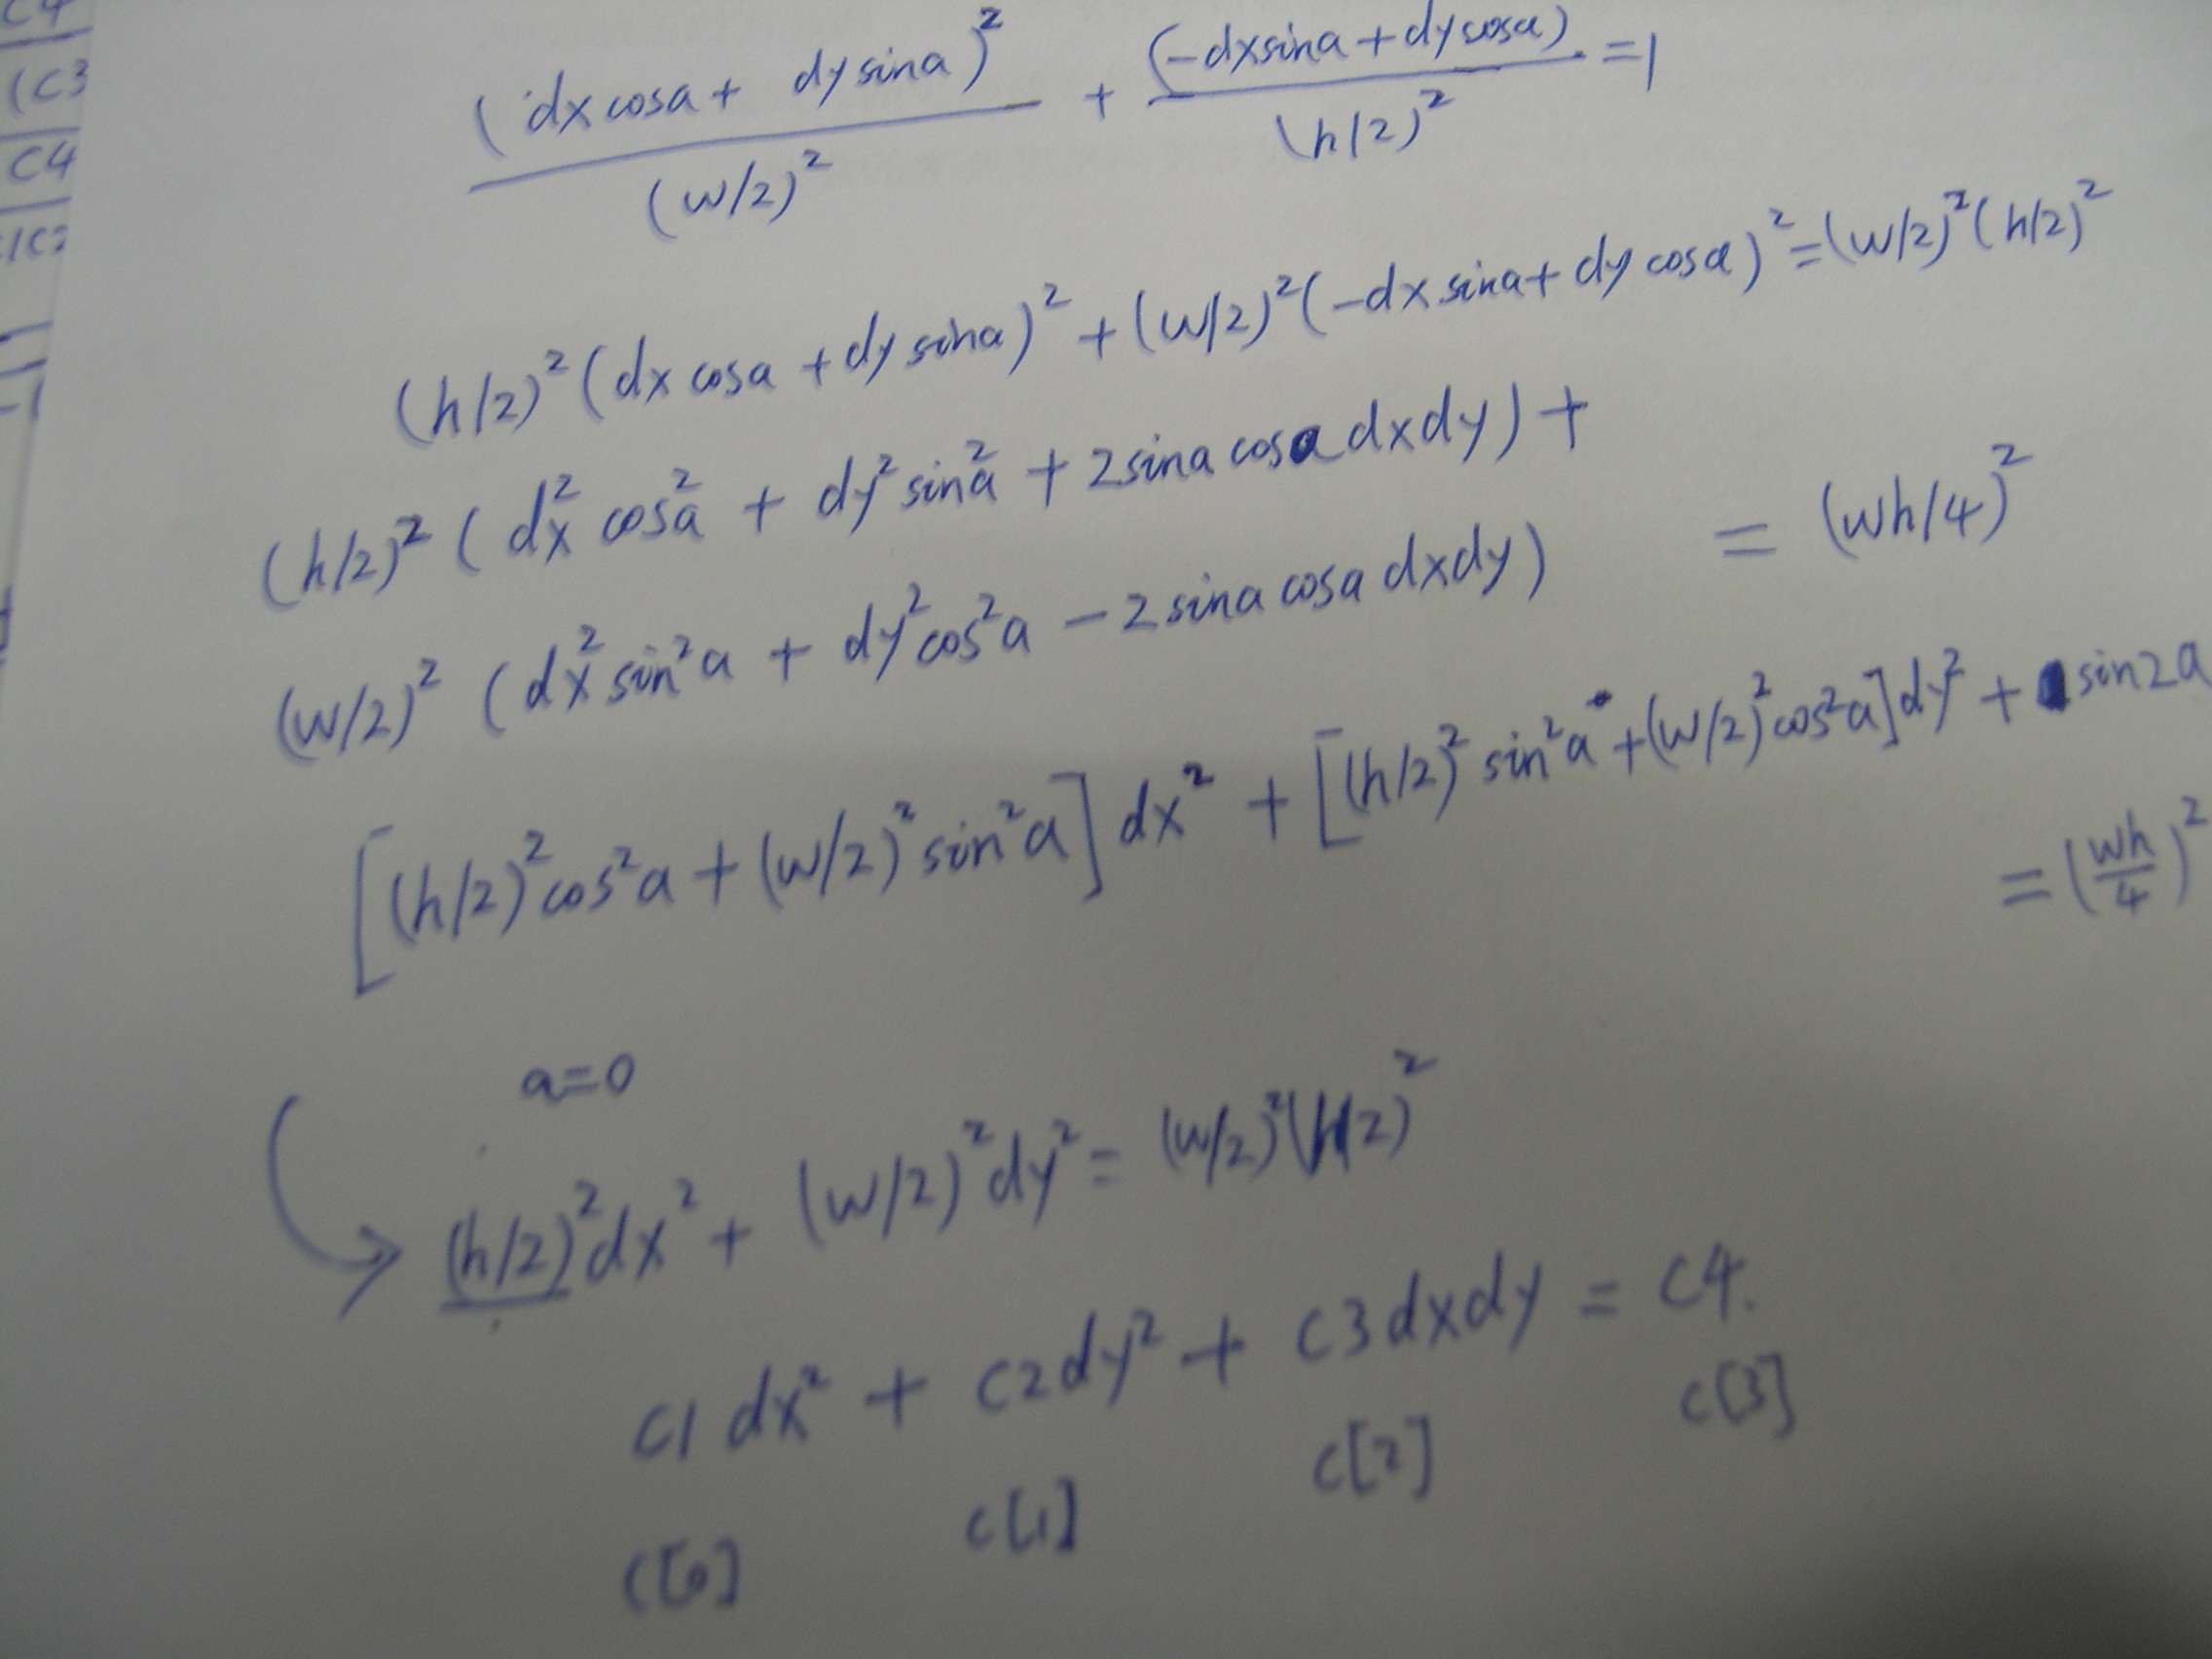 C4
(C3
C4
1C2
-1
(dx cosa + dy sina)² / (w/2)² + (-dx sina + dy cosa) / (h/2)² = 1
(h/2)² (dx cosa + dy sina)² + (w/2)² (-dx sina + dy cosa)² = (w/2)² (h/2)²
(h/2)² (dx² cos²a + dy² sin²a + 2 sina cosa dxdy) +
(w/2)² (dx² sin²a + dy² cos²a - 2 sina cosa dxdy) = (wh/4)²
[(h/2)² cos²a + (w/2)² sin²a] dx² + [(h/2)² sin²a + (w/2)² cos²a] dy² + sin2a
= (wh/4)²
a=0
→ (h/2)² dx² + (w/2)² dy² = (w/2)² (h/2)²
C1 dx² + C2 dy² + C3 dxdy = C4.
C[0] C[1] C[2] C[3]